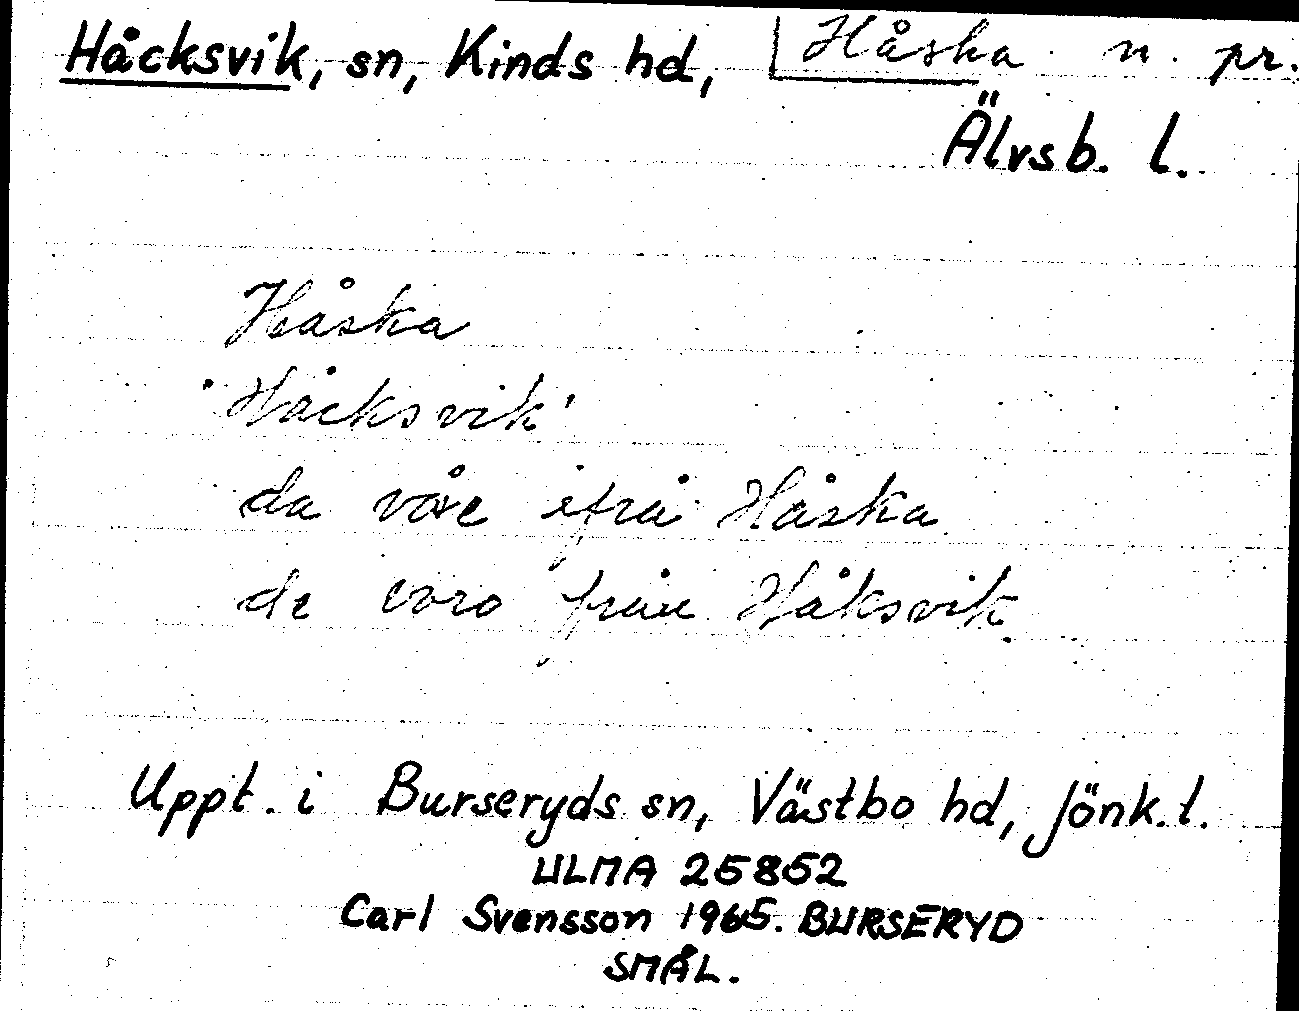 Håcksvik, sn, Kinds hd, Håska n. pr.
Älvsb. l.
Håska
'Håcksvik'
da våre ifrå Håska
de voro från Håksvik
Uppt. i Burseryds sn, Västbo hd, Jönk. l.
ULMA 25852
Carl Svensson 1965. BURSERYD
SMÅL.